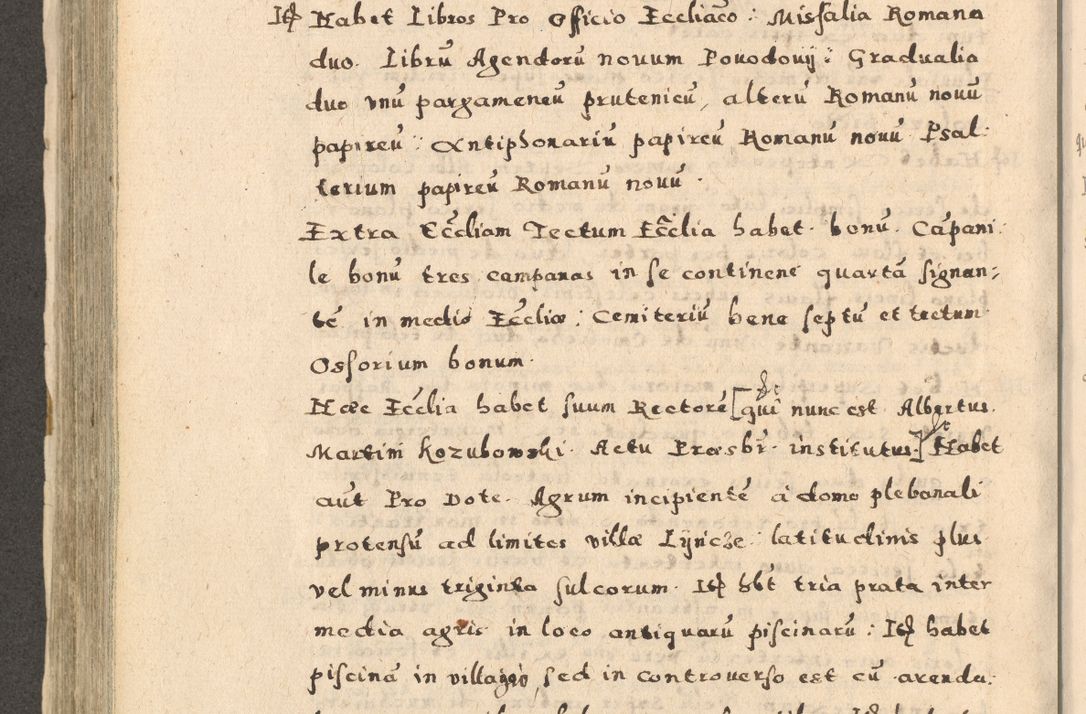 Itē Habet Libros Pro Officio Eccliaco : Missalia Romana
duo. Librū Agendorū nouum Pouodouij : Gradualia
duo vnū pargameneū prutenicū, alterū Romanū nouū
papireū : Antiphonariū papireū Romanū nouū Psal-
terium papireū Romanū nouū.
Extra Eccliam Tectum Ecclia habet bonū. Cāpani
le bonū tres campanas in se continens quartā signan:
tē in medio Eccliæ : Cemiteriū bene septū et tectum
Ossorium bonum.
Hæc Ecclia habet suum Rectorē [qui nunc est Albertus
Martini Kozubowski. Actu Præsbr. institutus] Habet
aūt Pro Dote Agrum incipientē a domo plebanali
protensū ad limites villæ Lÿncze latitudinis plus
vel minus triginta sulcorum. Itē hēt tria prata inter
media agris in loco antiquarū piscinarū : Itē habet
piscinā in villagio, sed in controuerso est cū arenda: